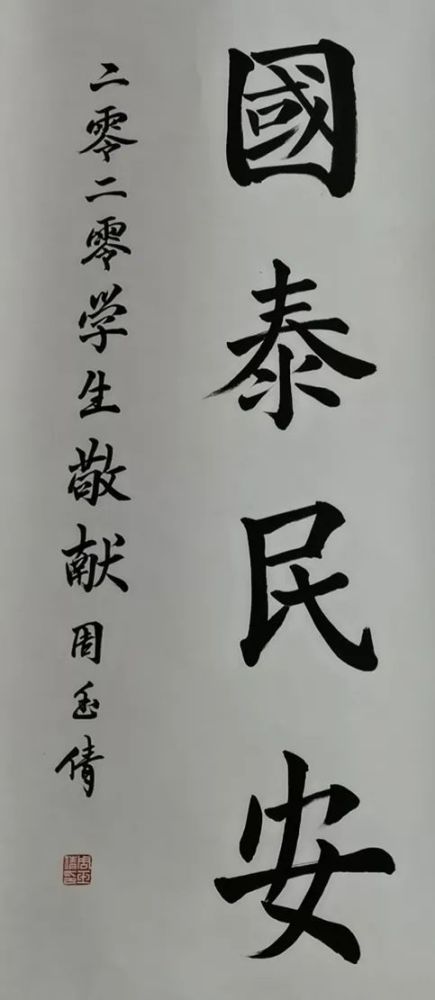 國泰民安
二零二零学生敬献周玉倩